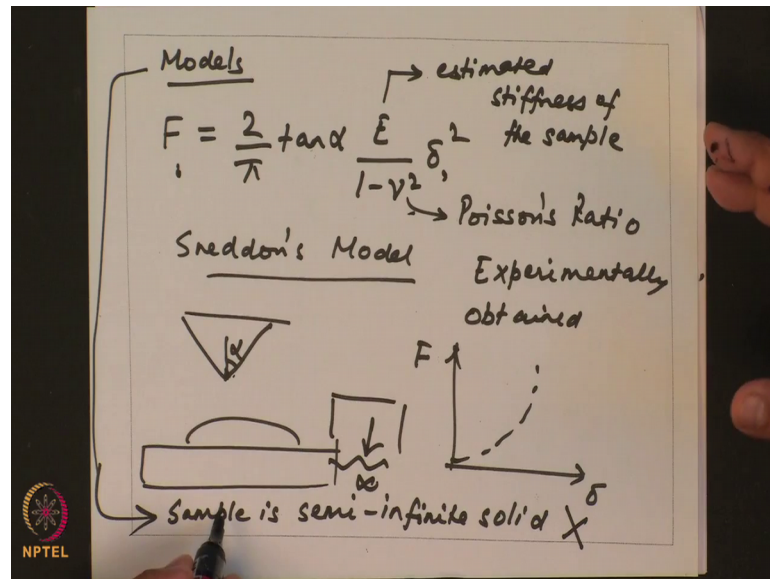 Models
estimated
stiffness of
the sample
F = 2/π tanα E/(1-ν²) δ²
Poisson's Ratio
Sneddon's Model
Experimentally
obtained
α
F
∞
δ
Sample is semi-infinite solid X
NPTEL